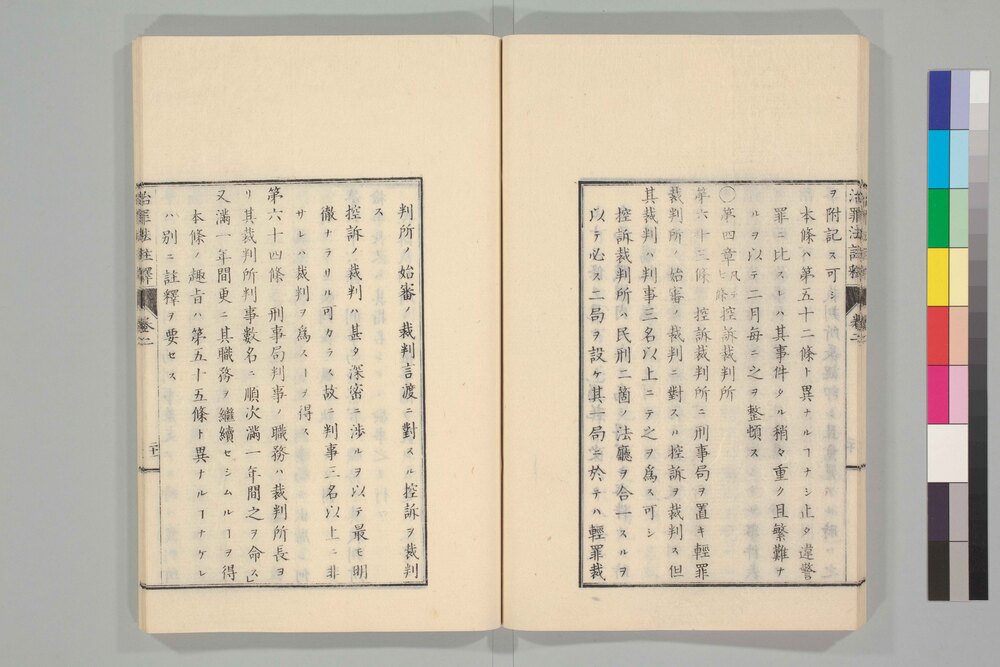 治罪法註釋 卷之二
ヲ附記ス可シ
本條ハ第五十二條ト異ナルヿナシ止タ違警
罪ニ比スレハ其事件タル稍々重ク且繁難ナ
ルヲ以テ二月每ニ之ヲ整頓ス
〇第四章 控訴裁判所
第六十三條 控訴裁判所ニ刑事局ヲ置キ輕罪
裁判所ノ始審ノ裁判ニ對スル控訴ヲ裁判ス但
其裁判ハ判事三名以上ニテ之ヲ爲ス可シ
控訴裁判所ハ民刑二箇ノ法廳ヲ合一スルヲ
以テ必ス二局ヲ設ケ其一局ニ於テハ輕罪裁
判所ノ始審ノ裁判言渡ニ對スル控訴ヲ裁判
ス
控訴ノ裁判ハ甚タ深密ニ涉ルヲ以テ最モ明
徹ナラサル可カラス故ニ判事三名以上ニ非
サレハ裁判ヲ爲スヿヲ得ス
第六十四條 刑事局判事ノ職務ハ裁判所長ヨ
リ其裁判所判事數名ニ順次滿一年間之ヲ命ス」
又滿一年間更ニ其職務ヲ繼續セシムルヿヲ得
本條ノ趣旨ハ第五十五條ト異ナルヿナケレ
ハ別ニ註釋ヲ要セス
治罪法註釋 卷之二